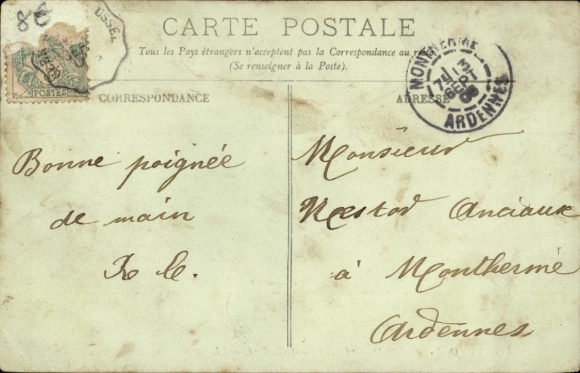 86
USSEL
CARTE POSTALE
Tous les Pays étrangers n'acceptent pas la Correspondance au
(Se renseigner à la Poste).
POSTES
CORRESPONDANCE
ADRESSE
MONTHERMÉ
7 13
SEPT
ARDENNES
Bonne poignée
de main
Monsieur
Nestor Anciaux
à Monthermé
Ardennes